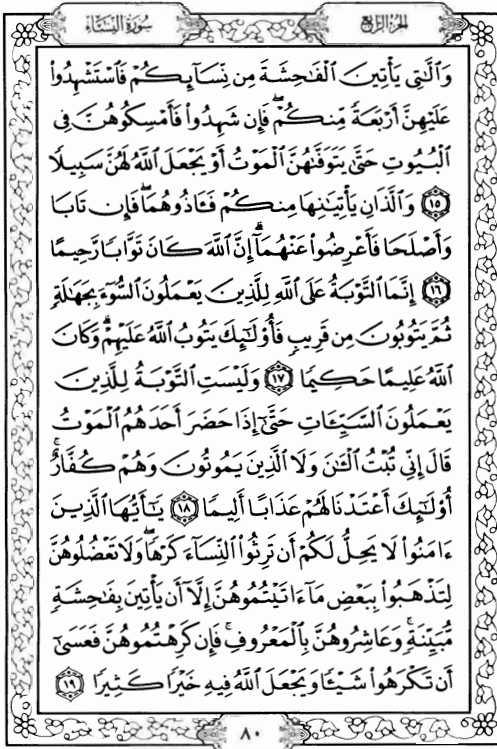 سُورَةُ النِّسَاءِ
الجُزْءُ الرَّابِعُ
وَٱلَّٰتِي يَأۡتِينَ ٱلۡفَٰحِشَةَ مِن نِّسَآئِكُمۡ فَٱسۡتَشۡهِدُواْ
عَلَيۡهِنَّ أَرۡبَعَةٗ مِّنكُمۡۖ فَإِن شَهِدُواْ فَأَمۡسِكُوهُنَّ فِي
ٱلۡبُيُوتِ حَتَّىٰ يَتَوَفَّىٰهُنَّ ٱلۡمَوۡتُ أَوۡ يَجۡعَلَ ٱللَّهُ لَهُنَّ سَبِيلٗا
١٥ وَٱلَّذَانِ يَأۡتِيَٰنِهَا مِنكُمۡ فَـَٔاذُوهُمَاۖ فَإِن تَابَا
وَأَصۡلَحَا فَأَعۡرِضُواْ عَنۡهُمَآۗ إِنَّ ٱللَّهَ كَانَ تَوَّابٗا رَّحِيمًا
١٦ إِنَّمَا ٱلتَّوۡبَةُ عَلَى ٱللَّهِ لِلَّذِينَ يَعۡمَلُونَ ٱلسُّوٓءَ بِجَهَٰلَةٖ
ثُمَّ يَتُوبُونَ مِن قَرِيبٖ فَأُوْلَٰٓئِكَ يَتُوبُ ٱللَّهُ عَلَيۡهِمۡۗ وَكَانَ
ٱللَّهُ عَلِيمًا حَكِيمٗا ١٧ وَلَيۡسَتِ ٱلتَّوۡبَةُ لِلَّذِينَ
يَعۡمَلُونَ ٱلسَّيِّـَٔاتِ حَتَّىٰٓ إِذَا حَضَرَ أَحَدَهُمُ ٱلۡمَوۡتُ
قَالَ إِنِّي تُبۡتُ ٱلۡـَٰٔنَ وَلَا ٱلَّذِينَ يَمُوتُونَ وَهُمۡ كُفَّارٌۚ
أُوْلَٰٓئِكَ أَعۡتَدۡنَا لَهُمۡ عَذَابًا أَلِيمٗا ١٨ يَٰٓأَيُّهَا ٱلَّذِينَ
ءَامَنُواْ لَا يَحِلُّ لَكُمۡ أَن تَرِثُواْ ٱلنِّسَآءَ كَرۡهٗاۖ وَلَا تَعۡضُلُوهُنَّ
لِتَذۡهَبُواْ بِبَعۡضِ مَآ ءَاتَيۡتُمُوهُنَّ إِلَّآ أَن يَأۡتِينَ بِفَٰحِشَةٖ
مُّبَيِّنَةٖۚ وَعَاشِرُوهُنَّ بِٱلۡمَعۡرُوفِۚ فَإِن كَرِهۡتُمُوهُنَّ فَعَسَىٰٓ
أَن تَكۡرَهُواْ شَيۡـٔٗا وَيَجۡعَلَ ٱللَّهُ فِيهِ خَيۡرٗا كَثِيرٗا ١٩
٨٠